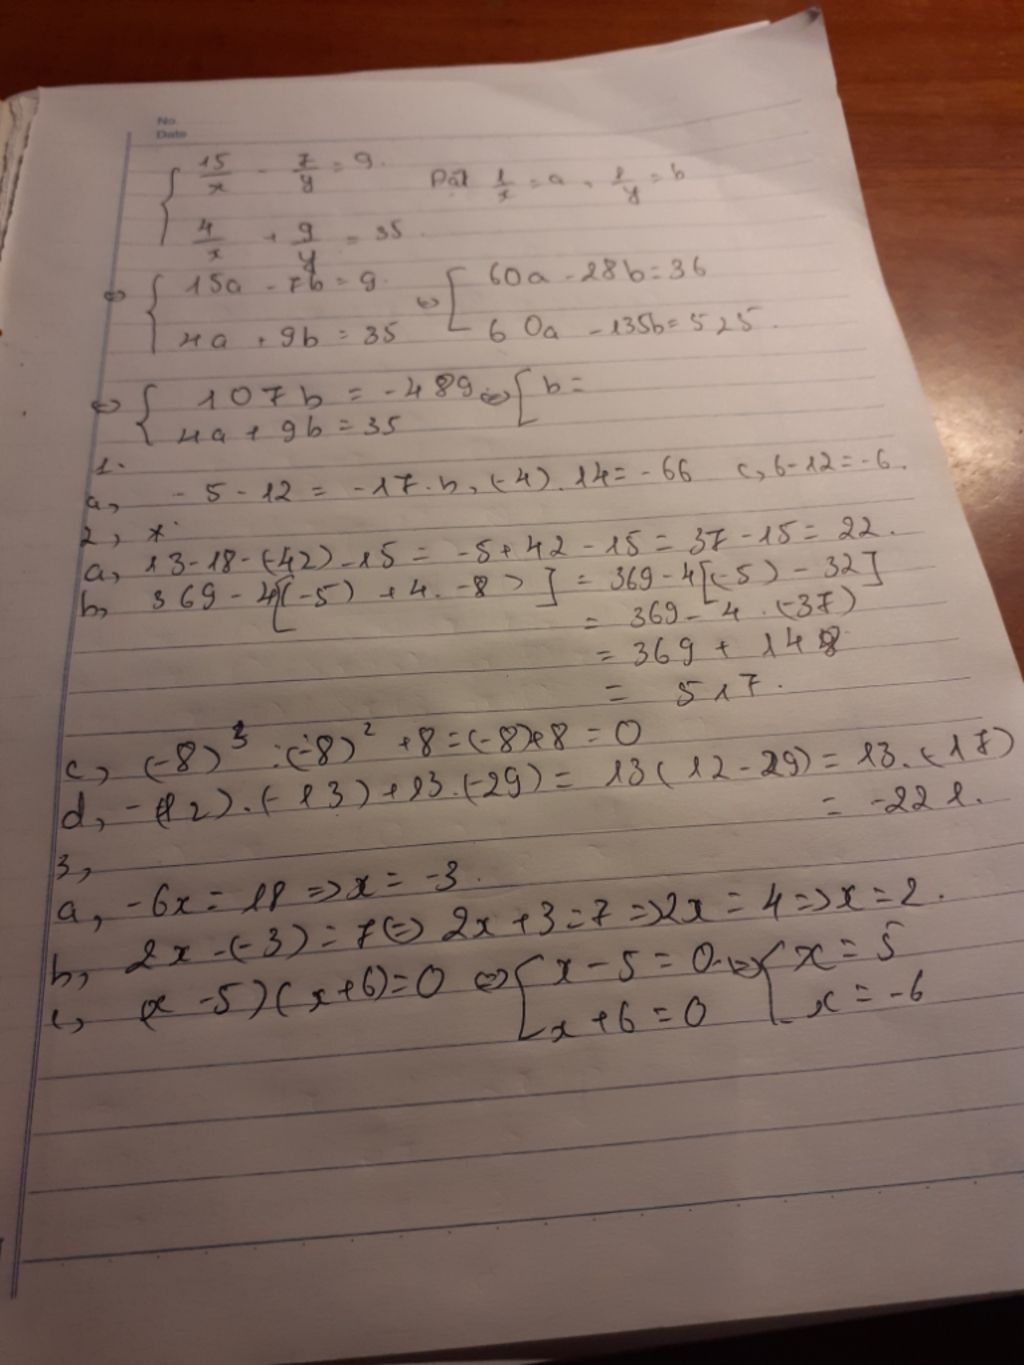 No.
Date
{ 15/x - 7/y = 9. Đặt 1/x = a, 1/y = b
4/x + 9/y = 35.
⇔ { 15a - 7b = 9. ⇔ [ 60a - 28b = 36
4a + 9b = 35 60a - 135b = 525.
⇔ { 107b = -489 ⇔ [ b =
4a + 9b = 35
1.
a, -5 - 12 = -17. b, (-4). 14 = -66 c, 6-12 = -6.
2, *
a, 13-18-(-42)-15 = -5+42-15 = 37-15 = 22.
b, 369 - 4[(-5) + 4. -8 ) ] = 369 - 4[(-5) - 32]
= 369 - 4 . (-37)
= 369 + 148
= 517.
c, (-8)³ : (-8)² + 8 = (-8)+8 = 0
d, -(12).(-13)+13.(-29) = 13(12-29) = 13.(17)
= -221.
3,
a, -6x = 18 => x = -3.
b, 2x -(-3) = 7 ⇔ 2x + 3 = 7 => 2x = 4 => x = 2.
c, (x -5)(x+6)=0 ⇔ [ x - 5 = 0 ⇔ [ x = 5
x + 6 = 0 x = -6